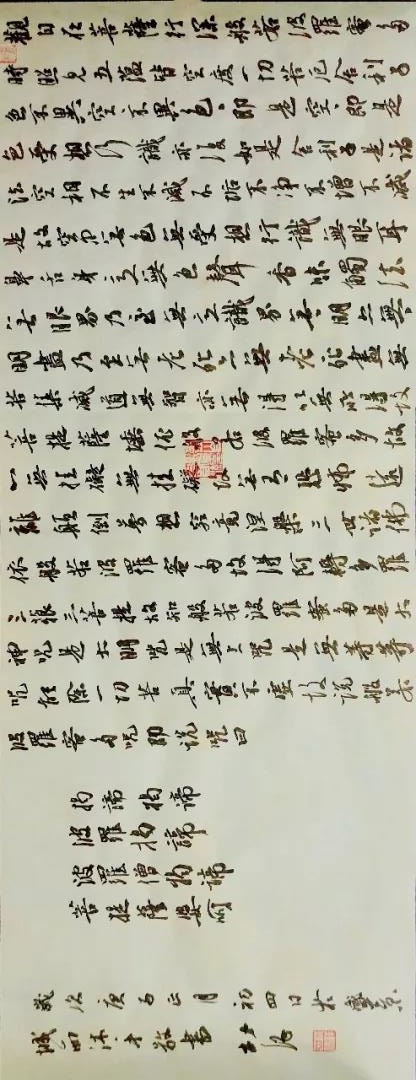 觀自在菩薩行深般若波羅蜜多
時照見五蘊皆空度一切苦厄舍利子
色不異空空不異色色即是空空即是
色受想行識亦復如是舍利子是諸
法空相不生不滅不垢不淨不增不減
是故空中無色無受想行識無眼耳
鼻舌身意無色聲香味觸法
無眼界乃至無意識界無無明亦無
明盡乃至無老死亦無老死盡無
苦集滅道無智亦無得以無所得故
菩提薩埵依般若波羅蜜多故
心無挂礙無挂礙故無有恐怖遠
離顛倒夢想究竟涅槃三世諸佛
依般若波羅蜜多故得阿耨多羅
三藐三菩提故知般若波羅蜜多是大
神咒是大明咒是無上咒是無等等
咒能除一切苦真實不虛故說般若
波羅蜜多咒即說咒曰
揭諦揭諦
波羅揭諦
波羅僧揭諦
菩提薩婆訶
歲次庚子正月初四日於京
城西沐手敬書